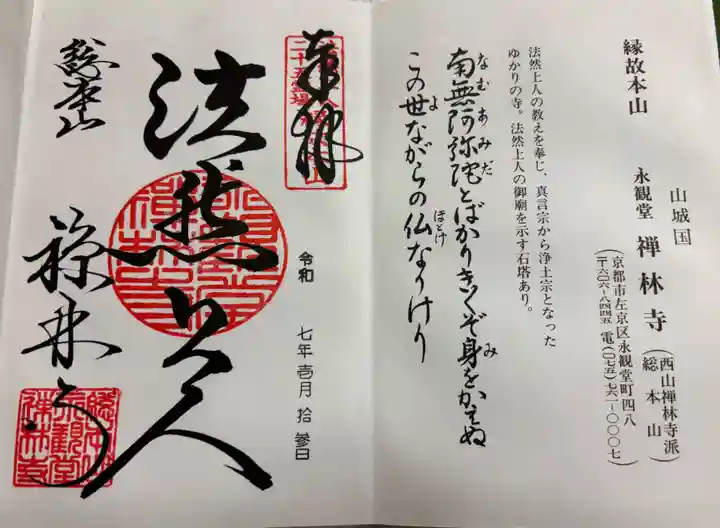 山城国
縁故本山 永観堂 禅林寺 (西山禅林寺派 総本山)
(京都市左京区永観堂町四八
〒六〇六-八四四五 電(〇七五)七六一-〇〇〇七)
法然上人の教えを奉じ、真言宗から浄土宗となった
ゆかりの寺。法然上人の御廟を示す石塔あり。
南無阿弥陀とばかりきくぞ身をかえぬ
なむあみだ
み
この世ながらの仏なりけり
よ
ほとけ
奉拝
令和 七年壱月拾参日
法然上人
総本山
禅林寺